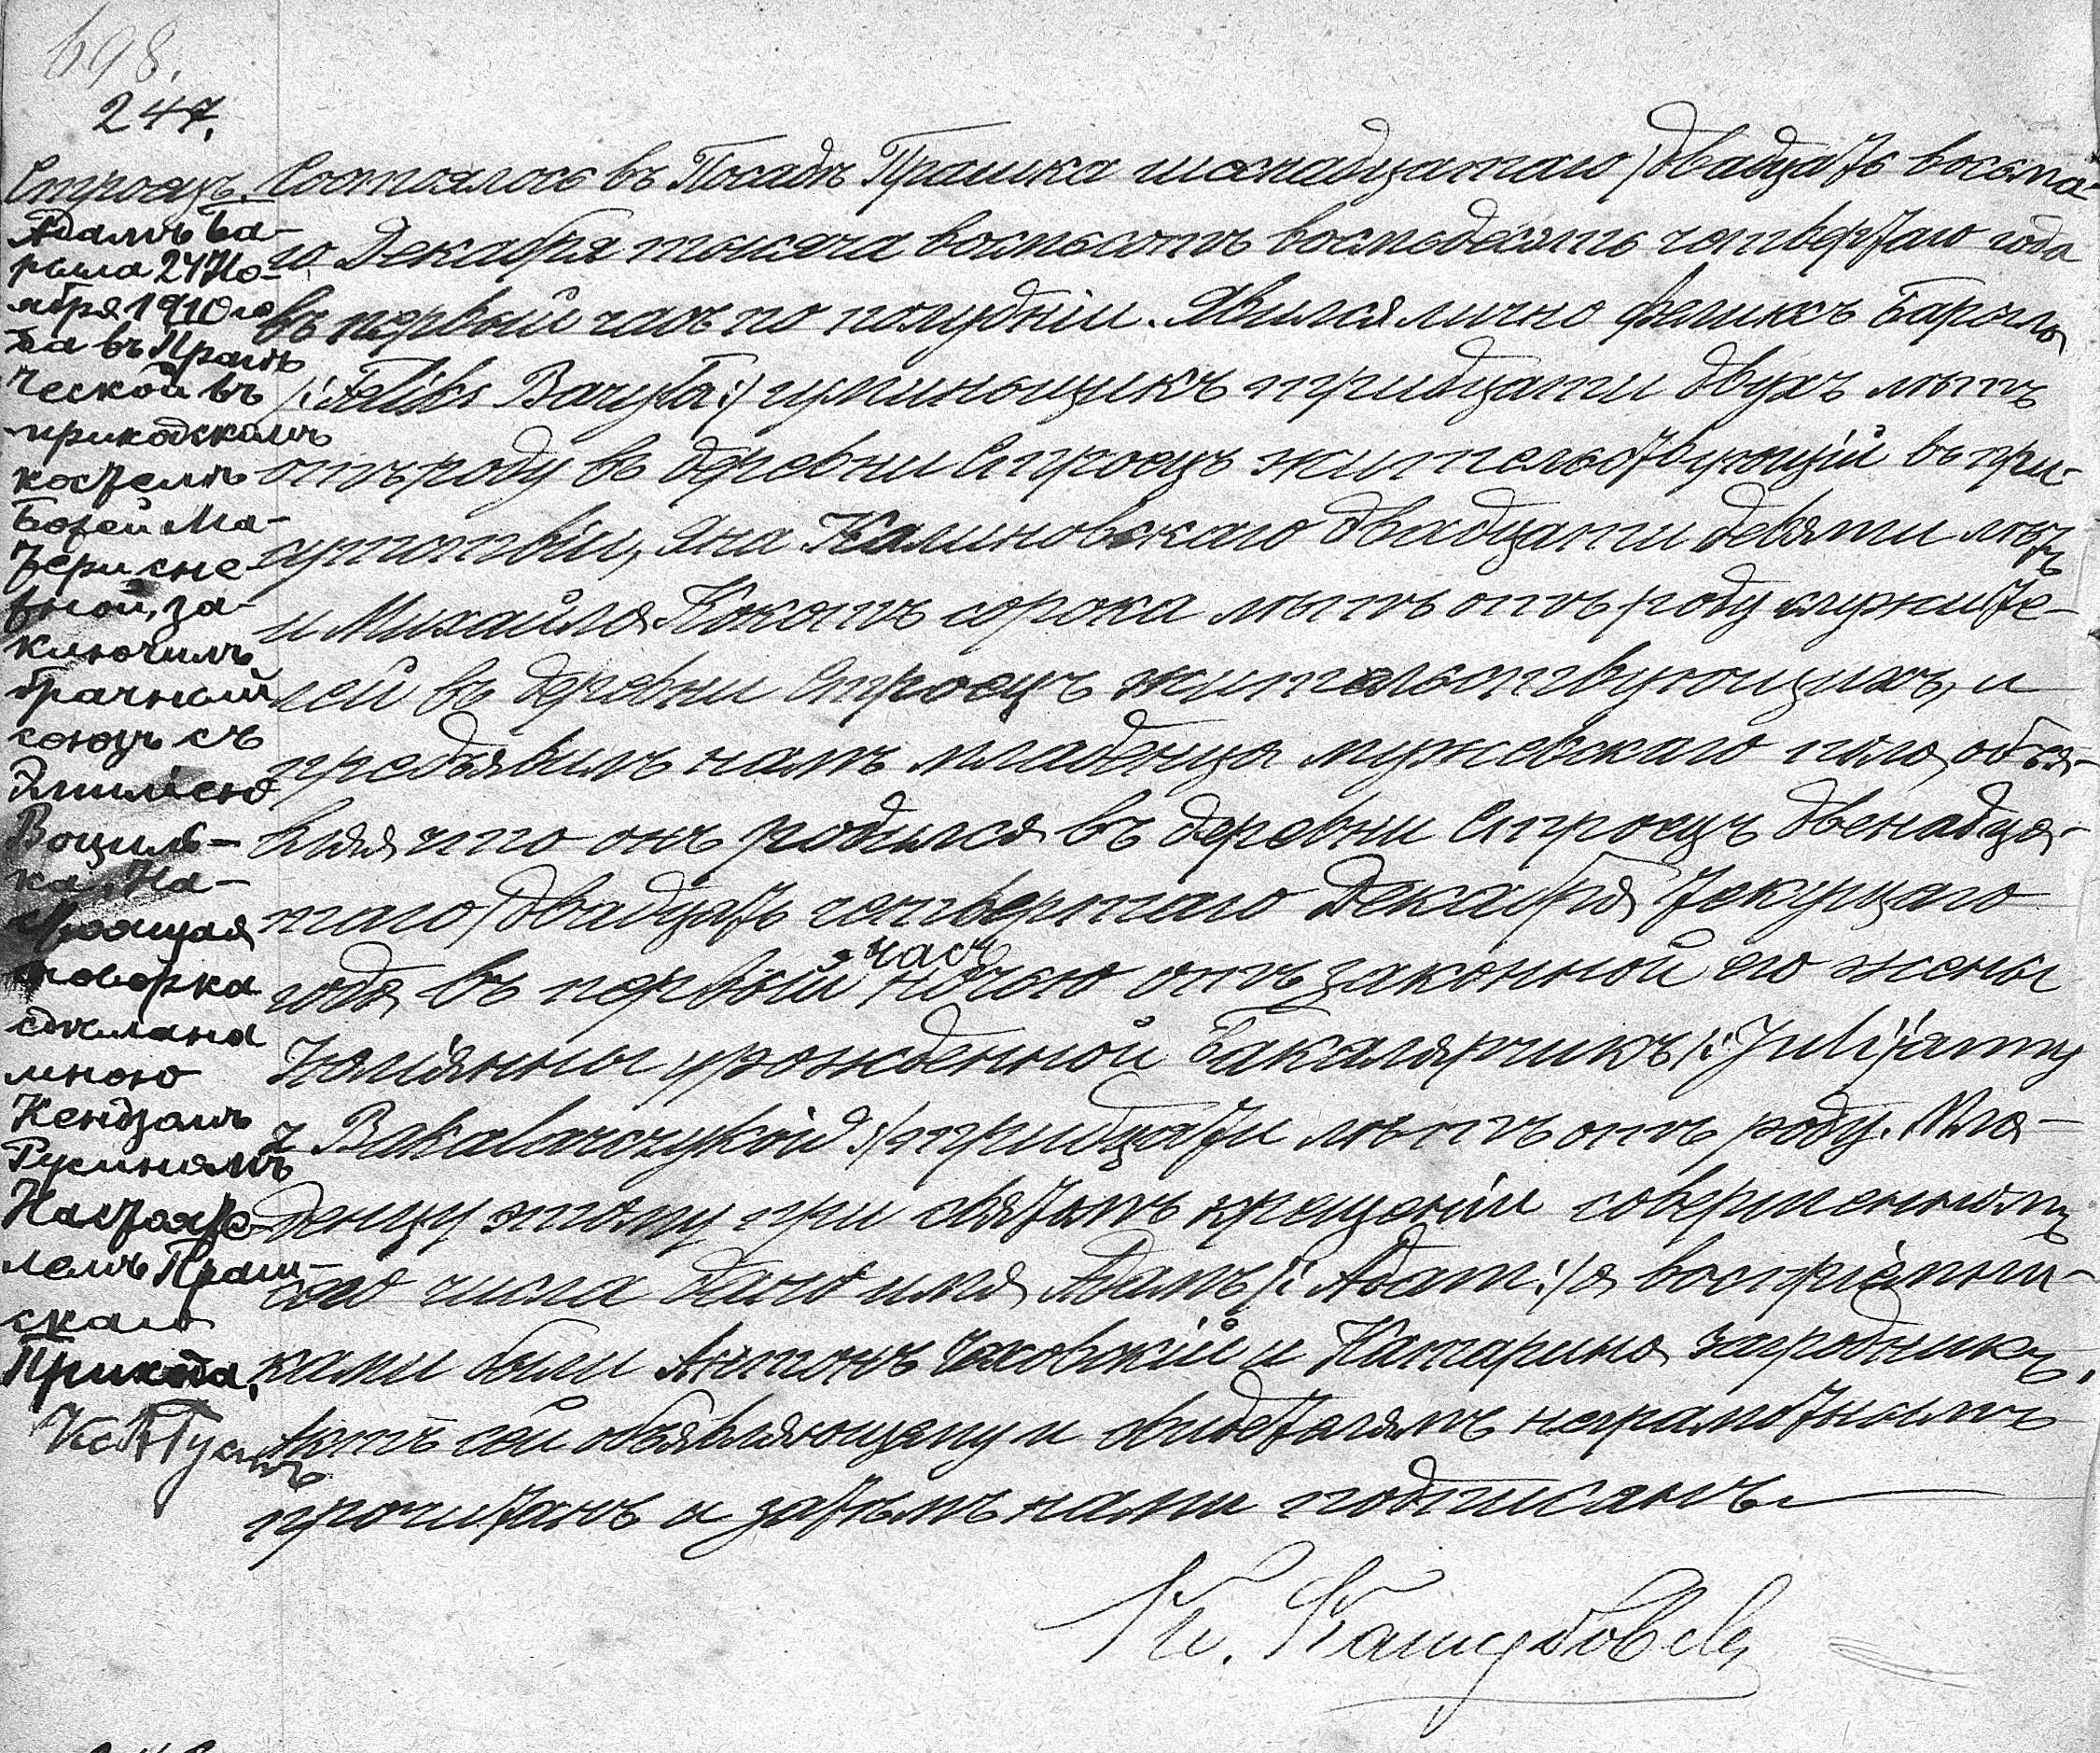 698.
247.
Строецъ.
Адамъ Ба-
рыла 24 Но-
ября 1910 го
да въ Прасны
ческой въ
приходскомъ
костелѣ
Божей Ма-
тери сне
вной, за-
ключилъ
брачный
союзъ съ
Эмилiею
Воциль-
ка. На-
стоящая
говорка
сдѣлана
мною
Кендзомъ
Гуминямъ
Настояте-
лемъ Праш-
скаго
Прихода.
Состоялось въ Посадѣ Прашка шестнадцатаго /двадцать восьма-
го Декабря тысяча восемьсотъ восемьдесятъ четвертаго года
въ первый часъ по полудніи. Явился лично Феликсъ Барыла
/: Feliks Baryła :/ гуменьщикъ тридцати двухъ лѣтъ
отъ роду въ деревни Строецъ жительствующій въ при-
сутствіи, Яна Калиновскаго двадцати девяти лѣтъ
и Михаила Кокотъ сорока лѣтъ отъ роду служите-
лей въ деревни Строецъ жительствующихъ, и
предъявилъ намъ младенца мужевскаго пола, объя-
вляя что онъ родился въ деревни Строецъ двенадца-
таго /двадцать четвертаго Декабря текущаго
года въ первый часъ ночью отъ законной его жены
Юліянны урожденной Бакалярчикъ /: Julijanny
z Bakalarczyków :/ тридцати лѣтъ отъ роду. Мла-
денцу этому при святомъ крещеніи совершенномъ
сего числа дано имя Адамъ /: Adam :/ а воспріемни-
ками были Антонъ Чеховскій и Катарина Загродникъ.
Актъ сей объявляющему и свидетелямъ неграмотнымъ
прочитанъ и затѣмъ нами подписанъ